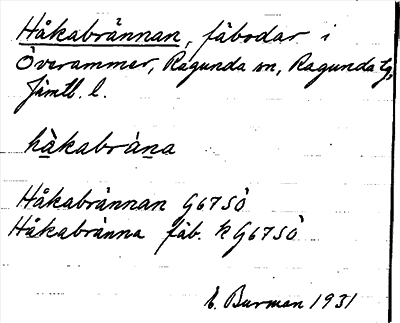 Håkabrännan, fäbodar i
Överammer, Ragunda sn, Ragunda tg,
Jämtl. l.
hàkabrána
Håkabrännan G67SÖ
Håkabränna fäb. k G67SÖ
E. Burman 1931